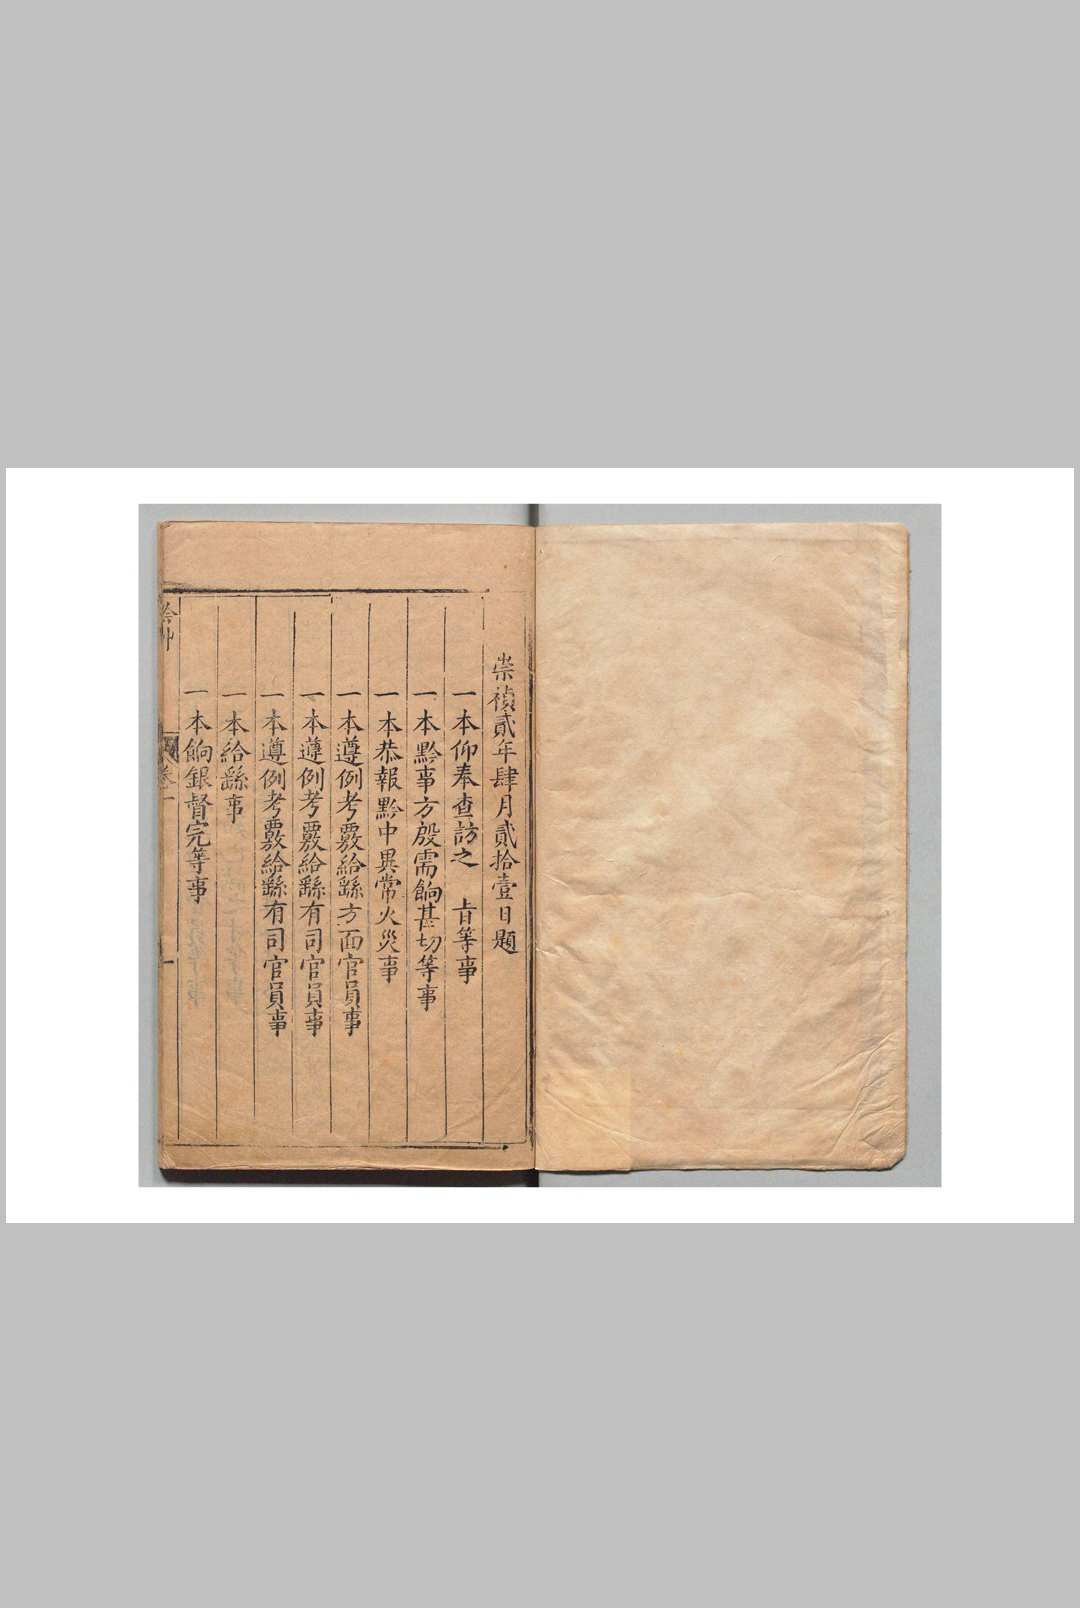 崇禎貳年肆月貳拾壹日題
一本仰奉查訪之　旨等事
一本黔事方殷需餉甚切等事
一本恭報黔中異常火災事
一本遵例考覈給繇方面官員事
一本遵例考覈給繇有司官員事
一本遵例考覈給繇有司官員事
一本給繇事
一本餉銀督完等事
卷一
一